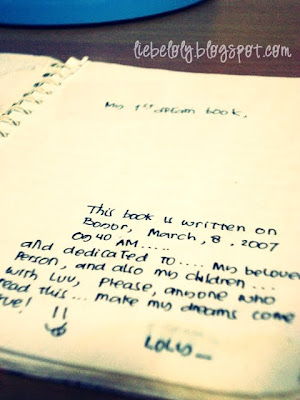 liebeloly.blogspot.com
My 1st dream book.
This book is written on
Bogor, March, 8, 2007
09.40 AM.....
and dedicated to.... My beloved
Person, and also my children...
with Luv, Please, anyone who
read this... make my dreams come
true! !!
Loly_